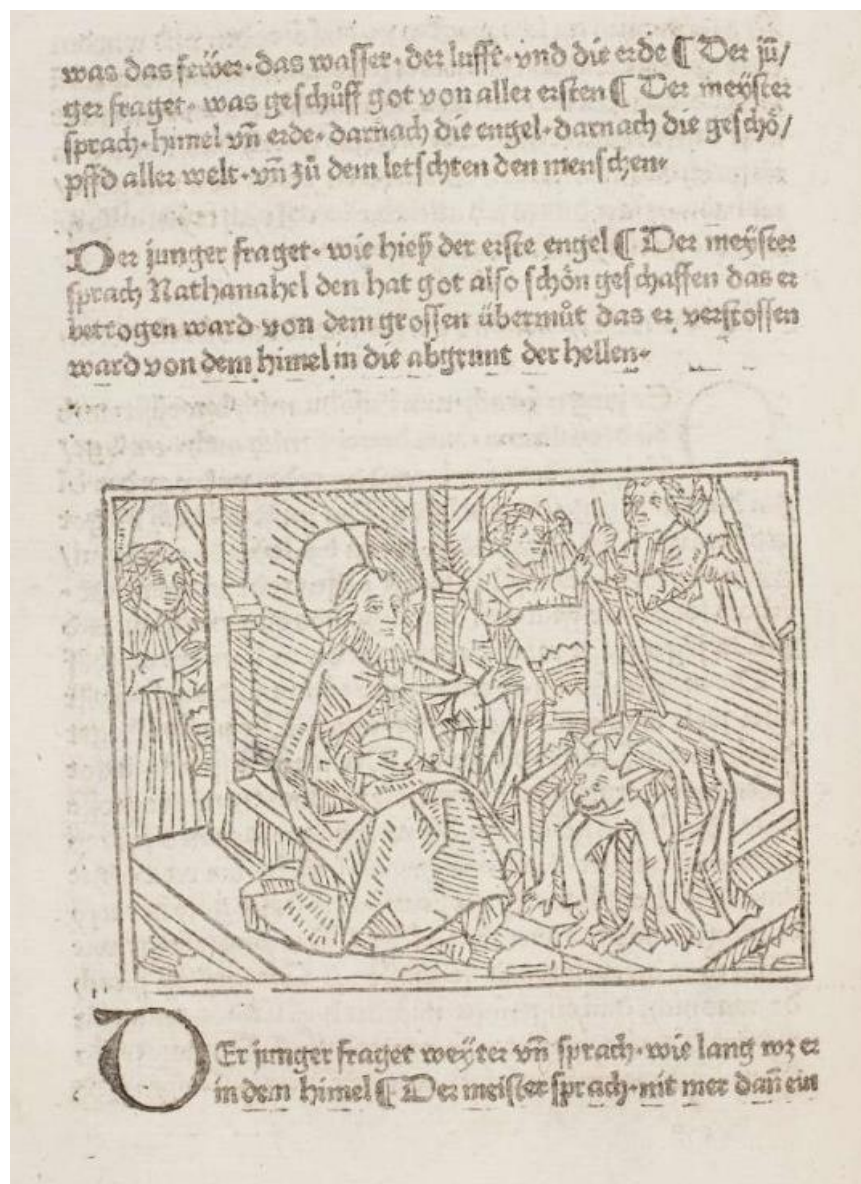 was das feüer· das wasser· der lufft· vnd die erde ⸿ Der jü/
ger fraget· was geschůff got von aller ersten ⸿ Der meÿster
sprach· himel vn̄ erde· darnach die engel· darnach die geschö/
pffd aller welt· vn̄ zů dem letschten den menschen·
Der junger fraget· wie hieß der erste engel ⸿ Der meÿster
sprach Nathanahel den hat got also schön geschaffen das er
betrogen ward von dem grossen übermůt das er verstossen
ward von dem himel in die abgrunt der hellen·
DEr junger fraget weÿter vn̄ sprach· wie lang wz er
in dem himel ⸿ Der meister sprach· nit mer dañ ein